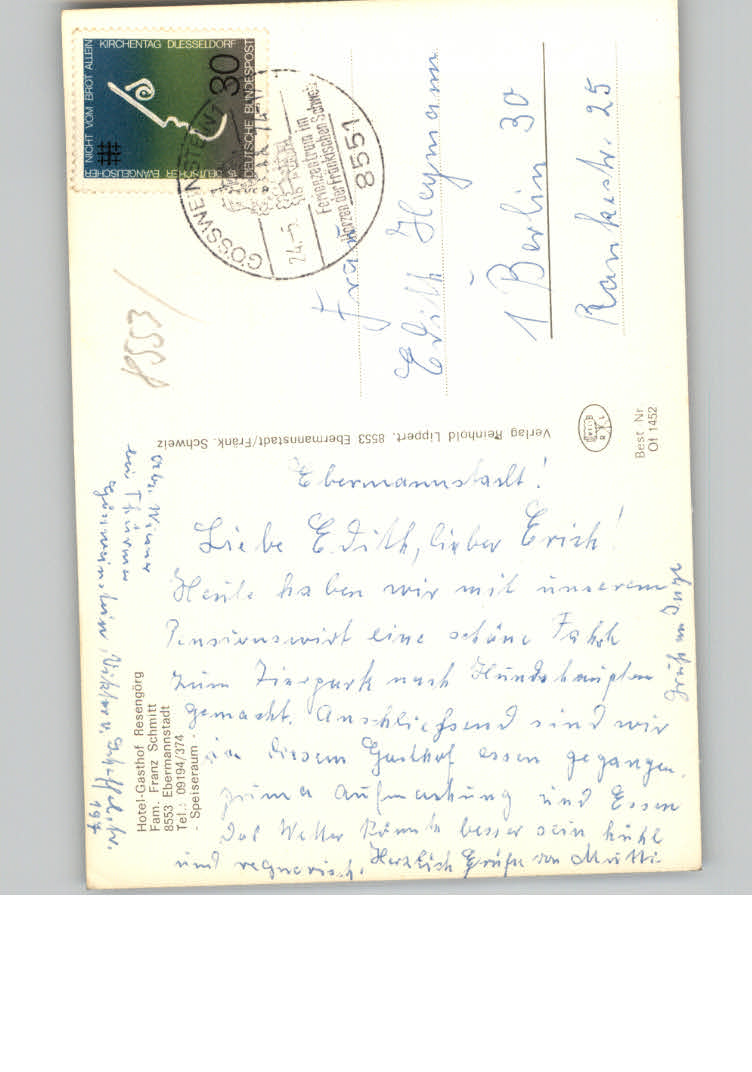 Ebermannstadt!
Liebe Edith, lieber Erich!
Heute haben wir mit unserem
Pensionswirt eine schöne Fahrt
zum Tierpark nach Hundshaupten
gemacht. Anschließend sind wir
in diesem Gasthof essen gegangen.
prima Aufmachung und Essen
Das Wetter könnte besser sein kühl
und regnerisch. Herzlich Grüße von Mutti
Gruß
Abs.
Gössweinstein, Viktor v. Scheffel Str.
Hotel-Gasthof Resengörg
Fam. Franz Schmitt
8553 Ebermannstadt
Tel.: 09194/374
- Speiseraum -
Verlag Reinhold Lippert, 8553 Ebermannstadt/Fränk. Schweiz
Best Nr
Of 1452
8553/
Frau
Edith Heymann
1 Berlin 30
Rankestr. 25
DEUTSCHER EVANGELISCHER
KIRCHENTAG DUESSELDORF
NICHT VOM BROT ALLEIN
DEUTSCHE BUNDESPOST
30
GÖSSWEINSTEIN
8551
Ferienzentrum im
Herzen der Fränkischen Schweiz
24.-5.